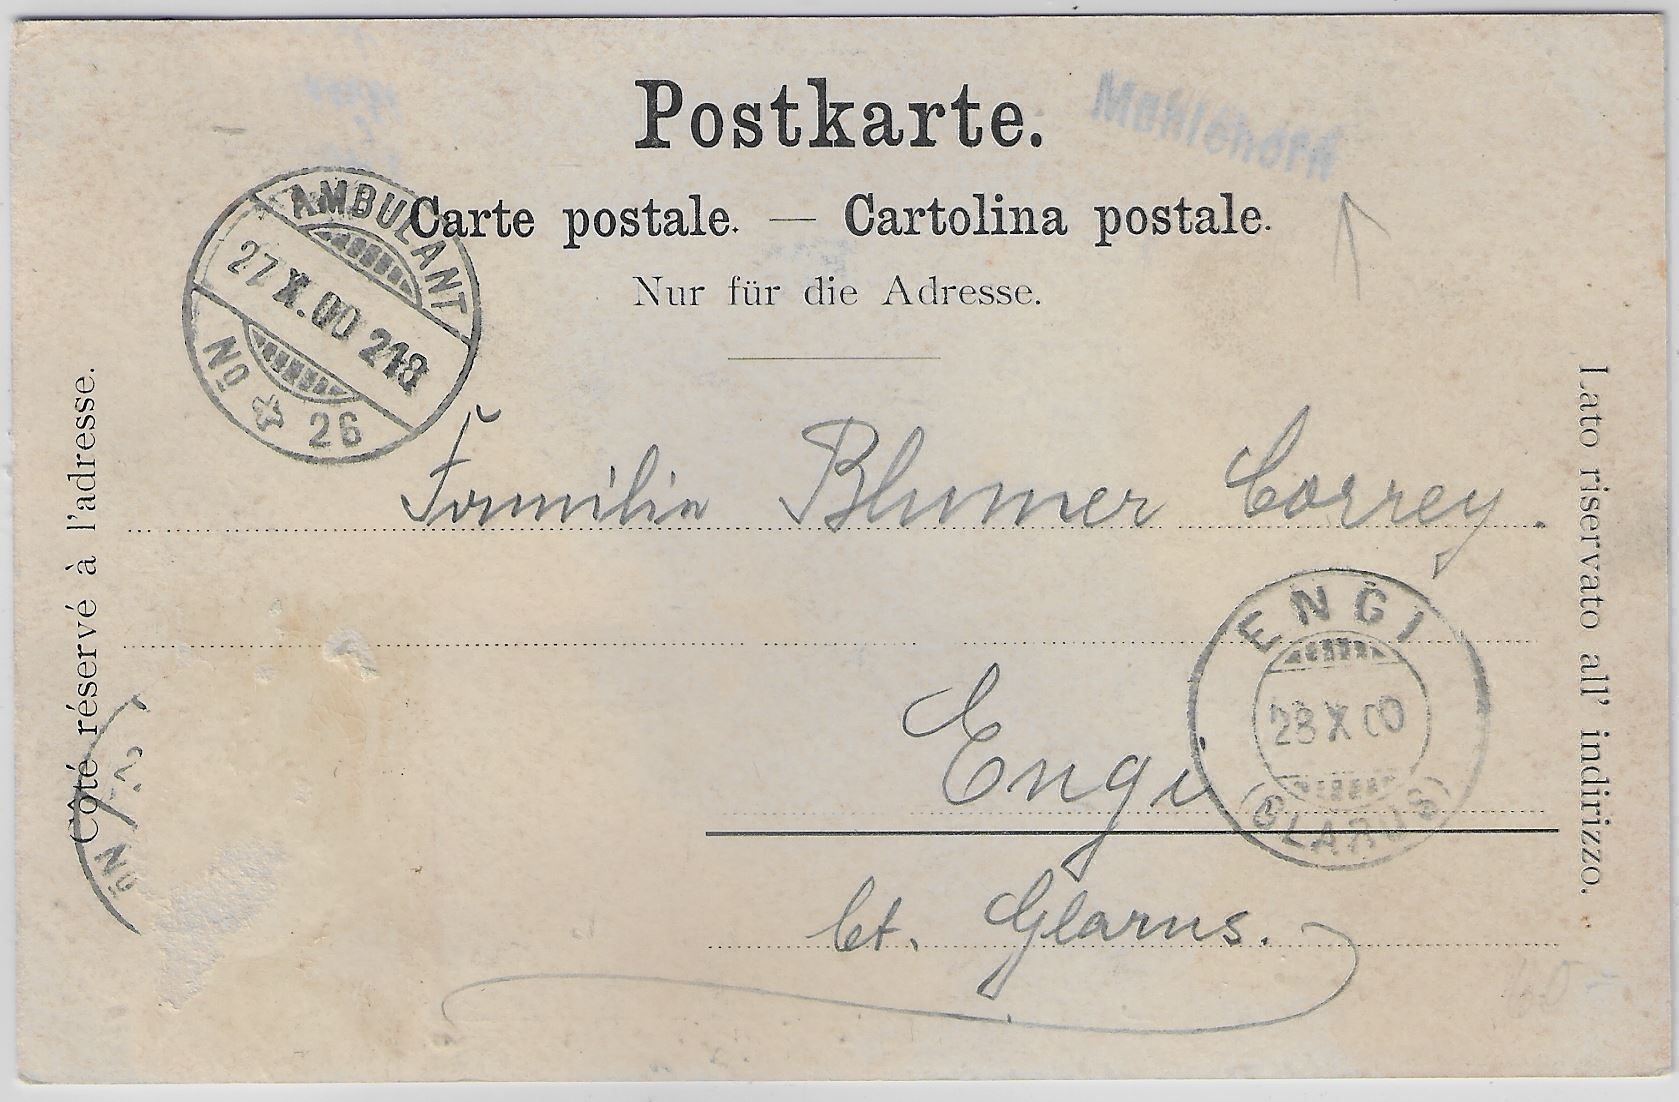 Postkarte.
Mühlehorn
Carte postale. — Cartolina postale.
Nur für die Adresse.
AMBULANT
27 X.00 218
No 26
Côté réservé à l'adresse.
Lato riservato all' indirizzo.
Familie Blumer Correy.
ENGI
28 X 00
(GLARUS)
Engi
Ct. Glarus.
No